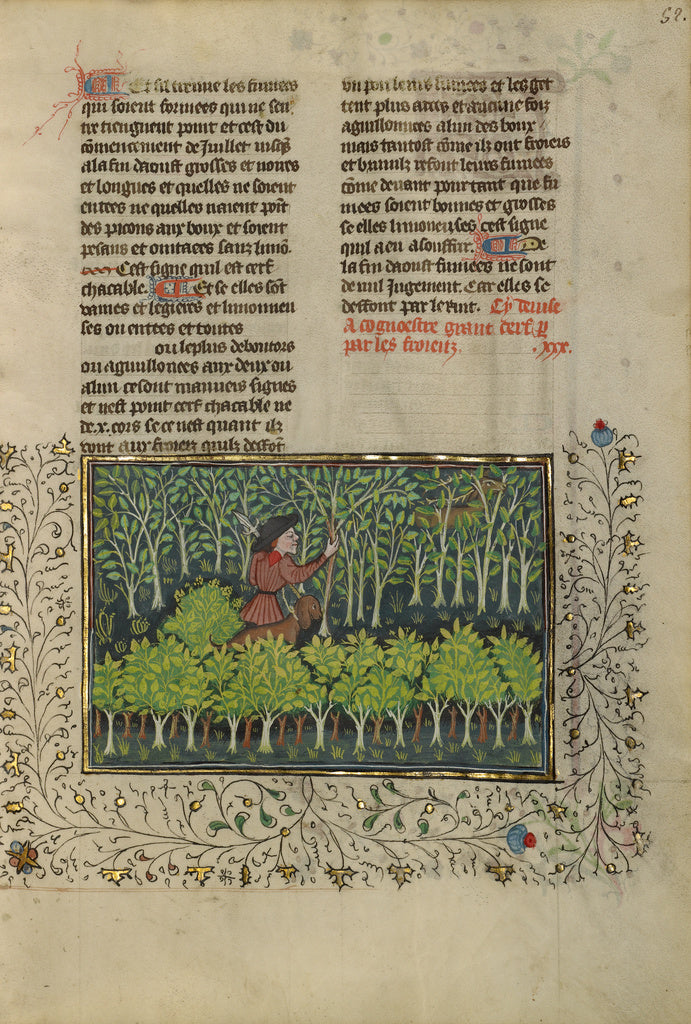 52.
Et sil treuue les fumees
qui soient formees qui ne sen
tre tiengnent point et cest du
cōmencement de Juillet iusq̄s
a la fin daoust grosses et noires
et longues et quelles ne soient
entees ne quelles naient poīt
des picons aux boux et soient
pesans et ointaces sanz limō.
Cest signe quil est cerf
chacable. Et se elles sōt
vaines et legieres et limonneu
ses ou entees et toutes
ou le plus deboutors
ou aguillonees aux deux ou
a lun ce sont mauuais signes
et nest point cerf chacable ne
de .x. cors se ce nest quant ilz
vont aux froiez quilz deffōt
vn pou leurs fumees et les get
tent plus arces et aucune foiz
aguillonnees a lun des boux
mais tantost cōme ilz ont froiers
et brunilz refont leurs fumees
cōme deuant pour tant que fu
mees soient bonnes et grosses
se elles limoneuses cest signe
quil a eu a souffrir. De
la fin daoust fumees ne sont
de nul Jugement. Car elles se
deffont par le ruit. Cy deuise
A cognoestre grant cerf p
par les froiez. .xxx.